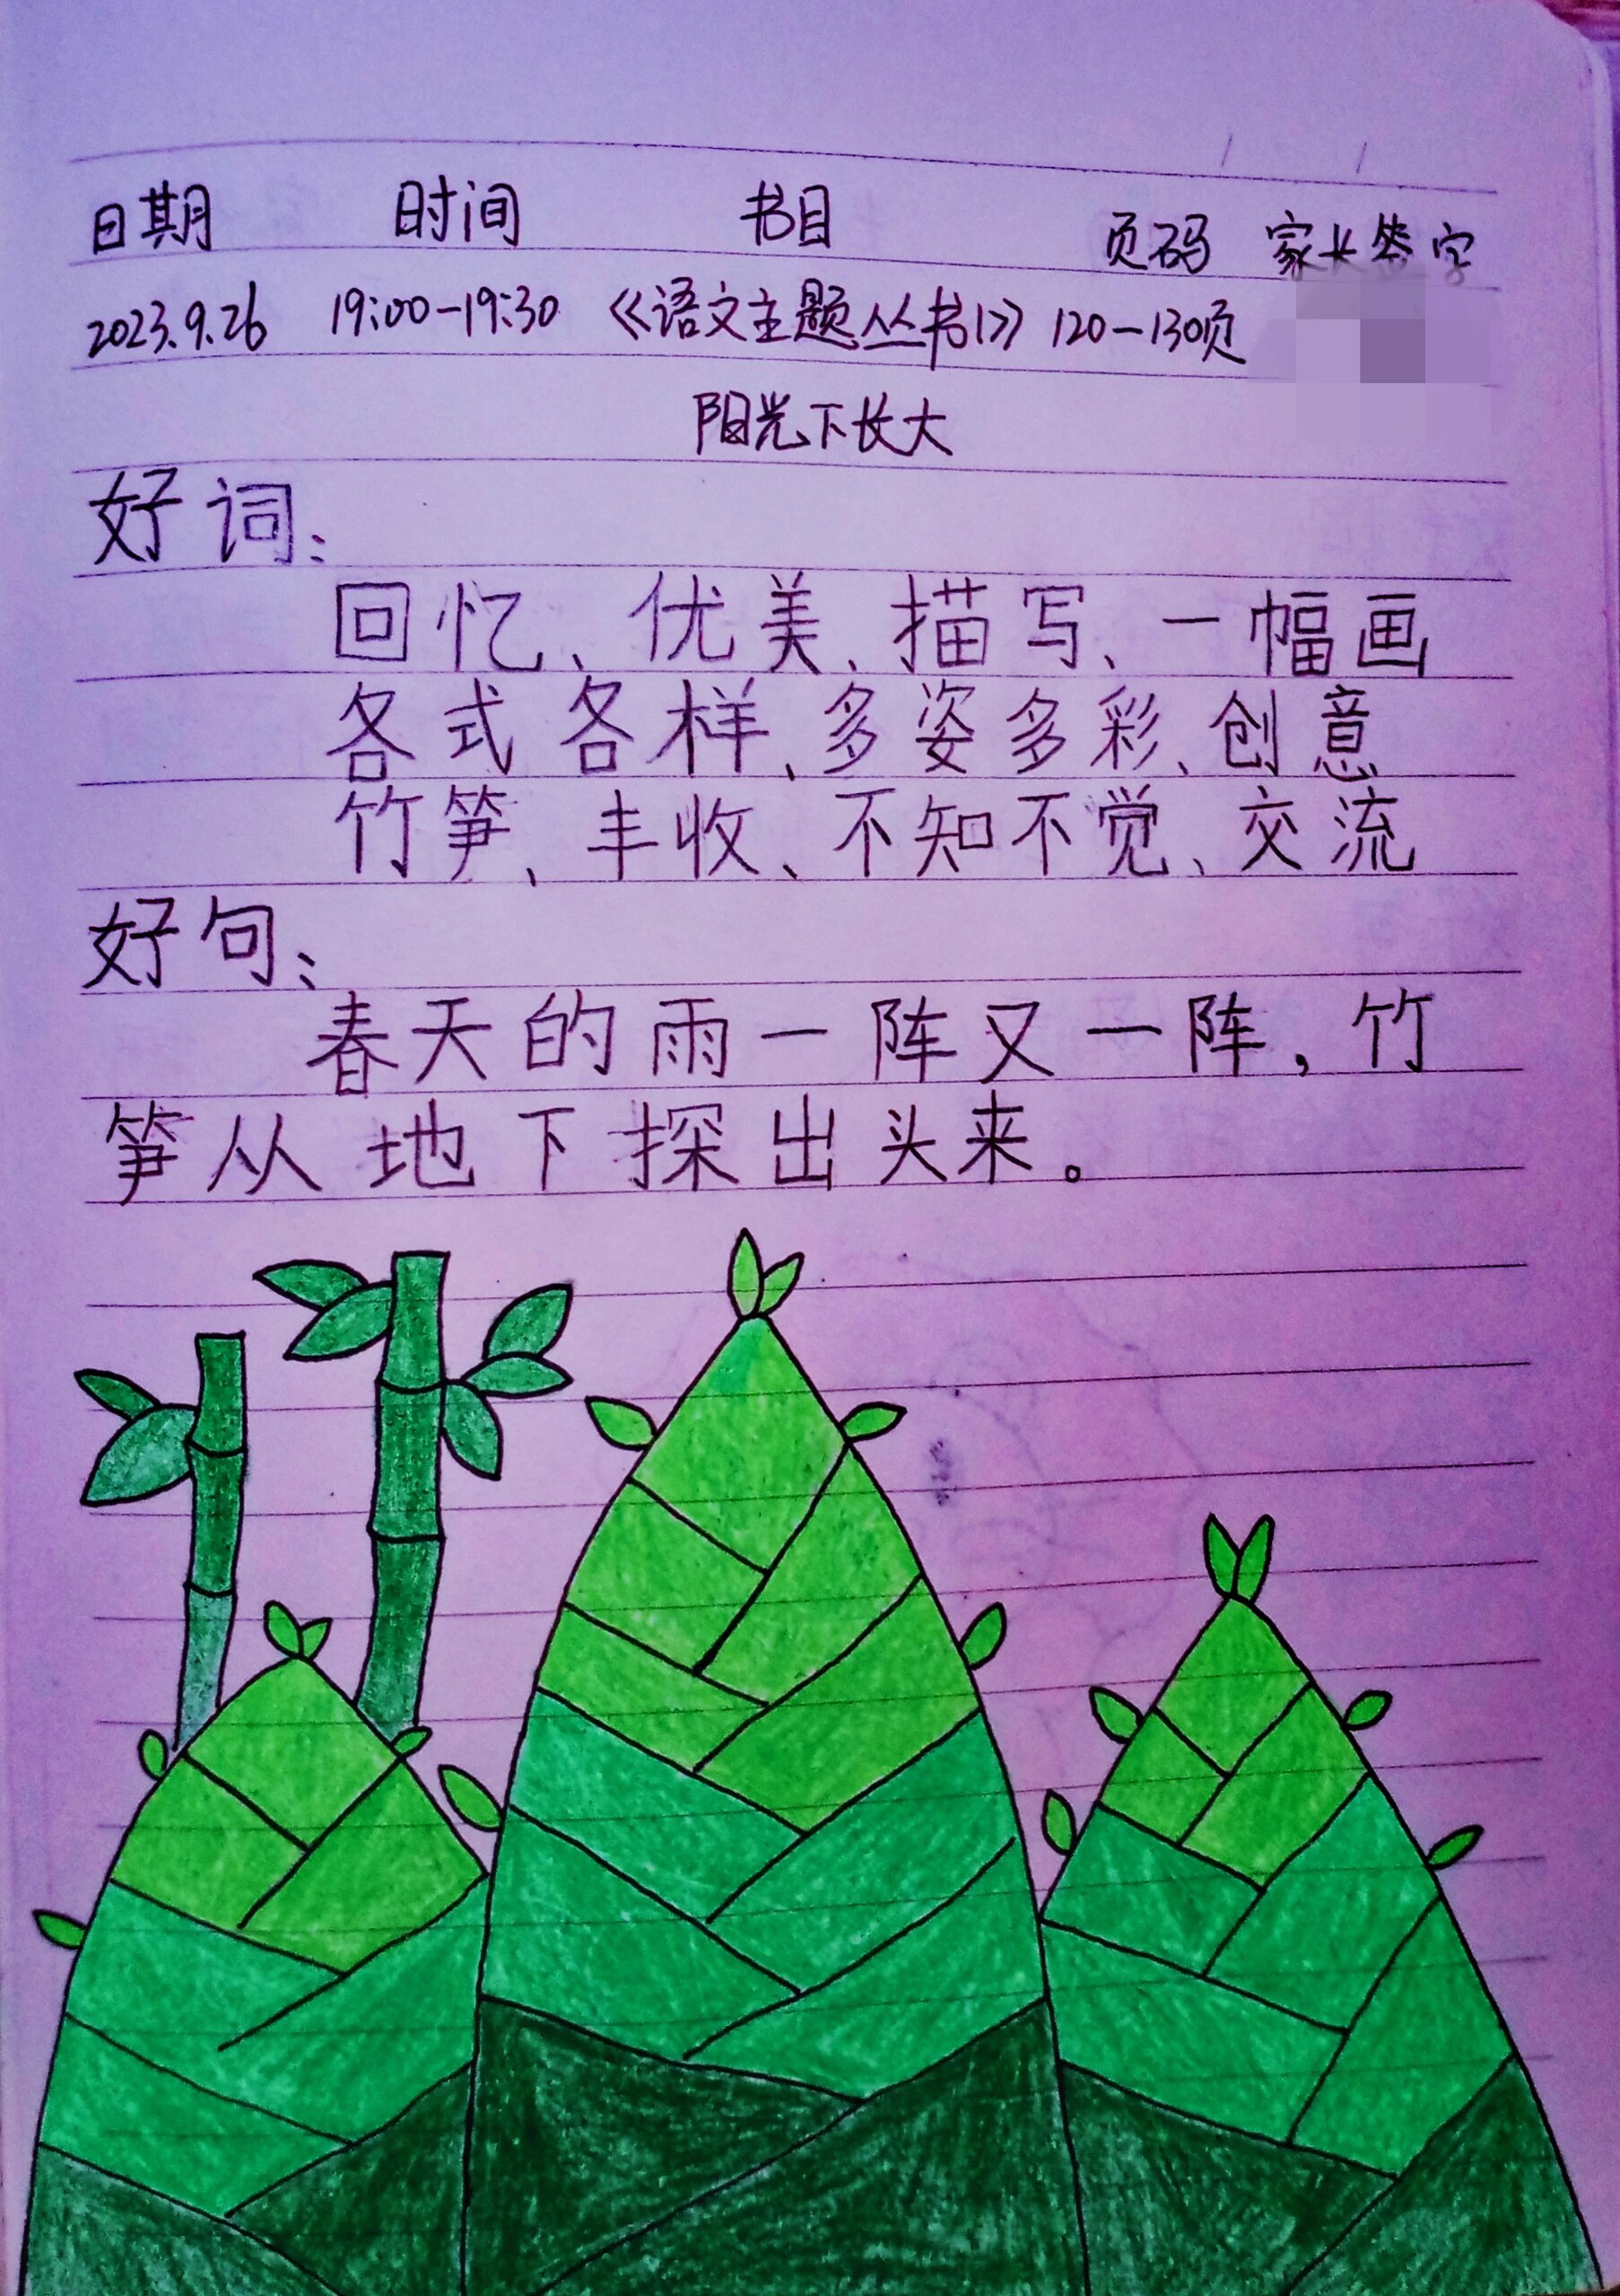 日期 时间 书目 页码 家长签字
2023.9.26 19:00-19:30 《语文主题丛书1》 120-130页
阳光下长大
好词:
回忆、优美、描写、一幅画
各式各样、多姿多彩、创意
竹笋、丰收、不知不觉、交流
好句:
春天的雨一阵又一阵,竹
笋从地下探出头来。